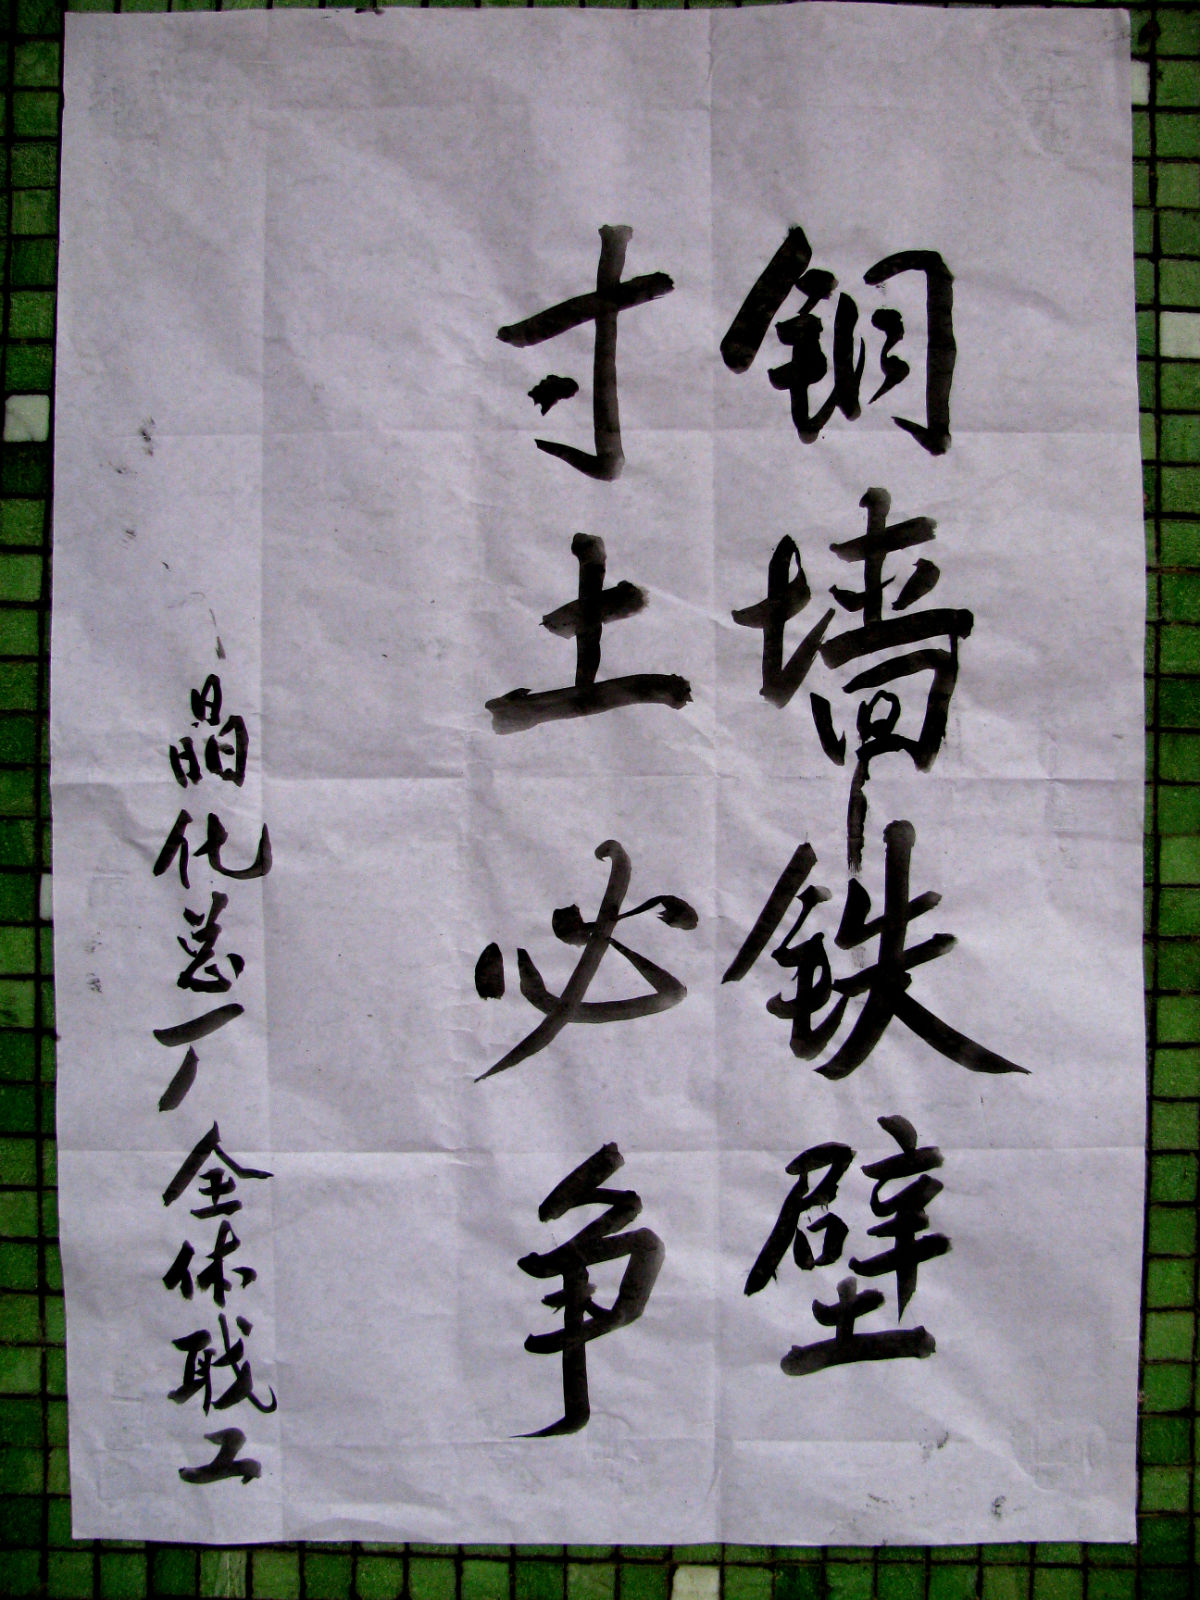 铜墙铁壁
寸土必争
晶化总厂全体职工